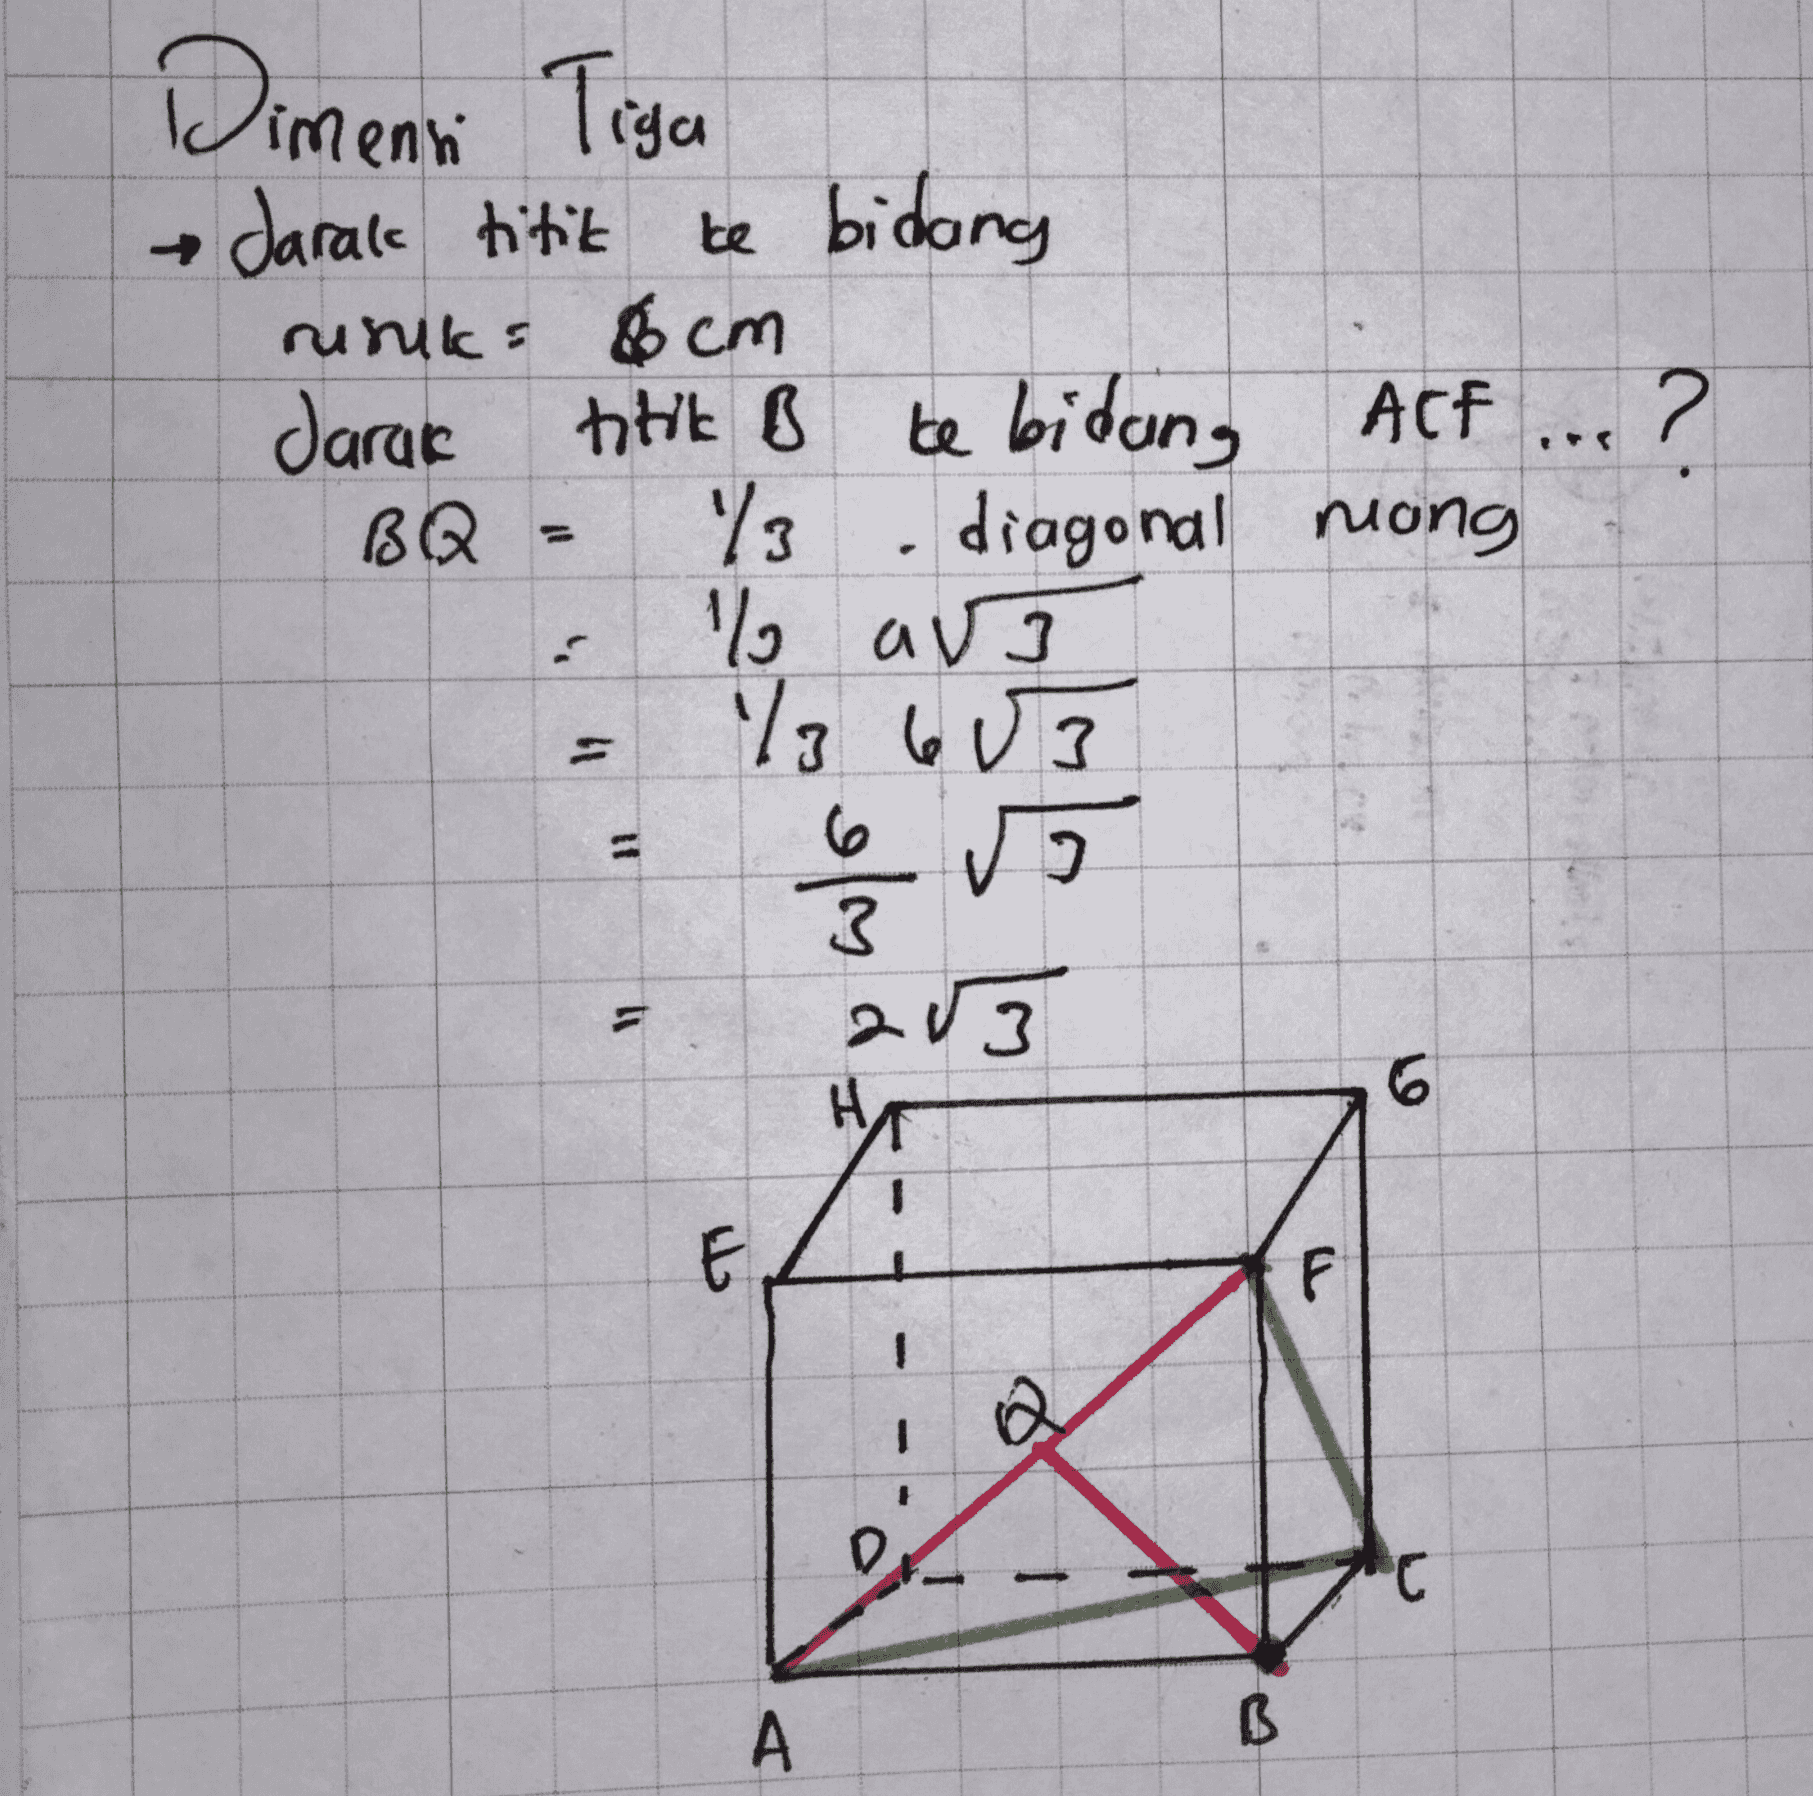 Dimensi Tiga
→ Jarak titik ke bidang
rusuk = 6 cm
Jarak titik B ke bidang ACF ... ?
BQ = 1/3 . diagonal ruang
= 1/3 a√3
= 1/3 6√3
= 6/3 √3
= 2√3
H G
E F
Q
D C
A B